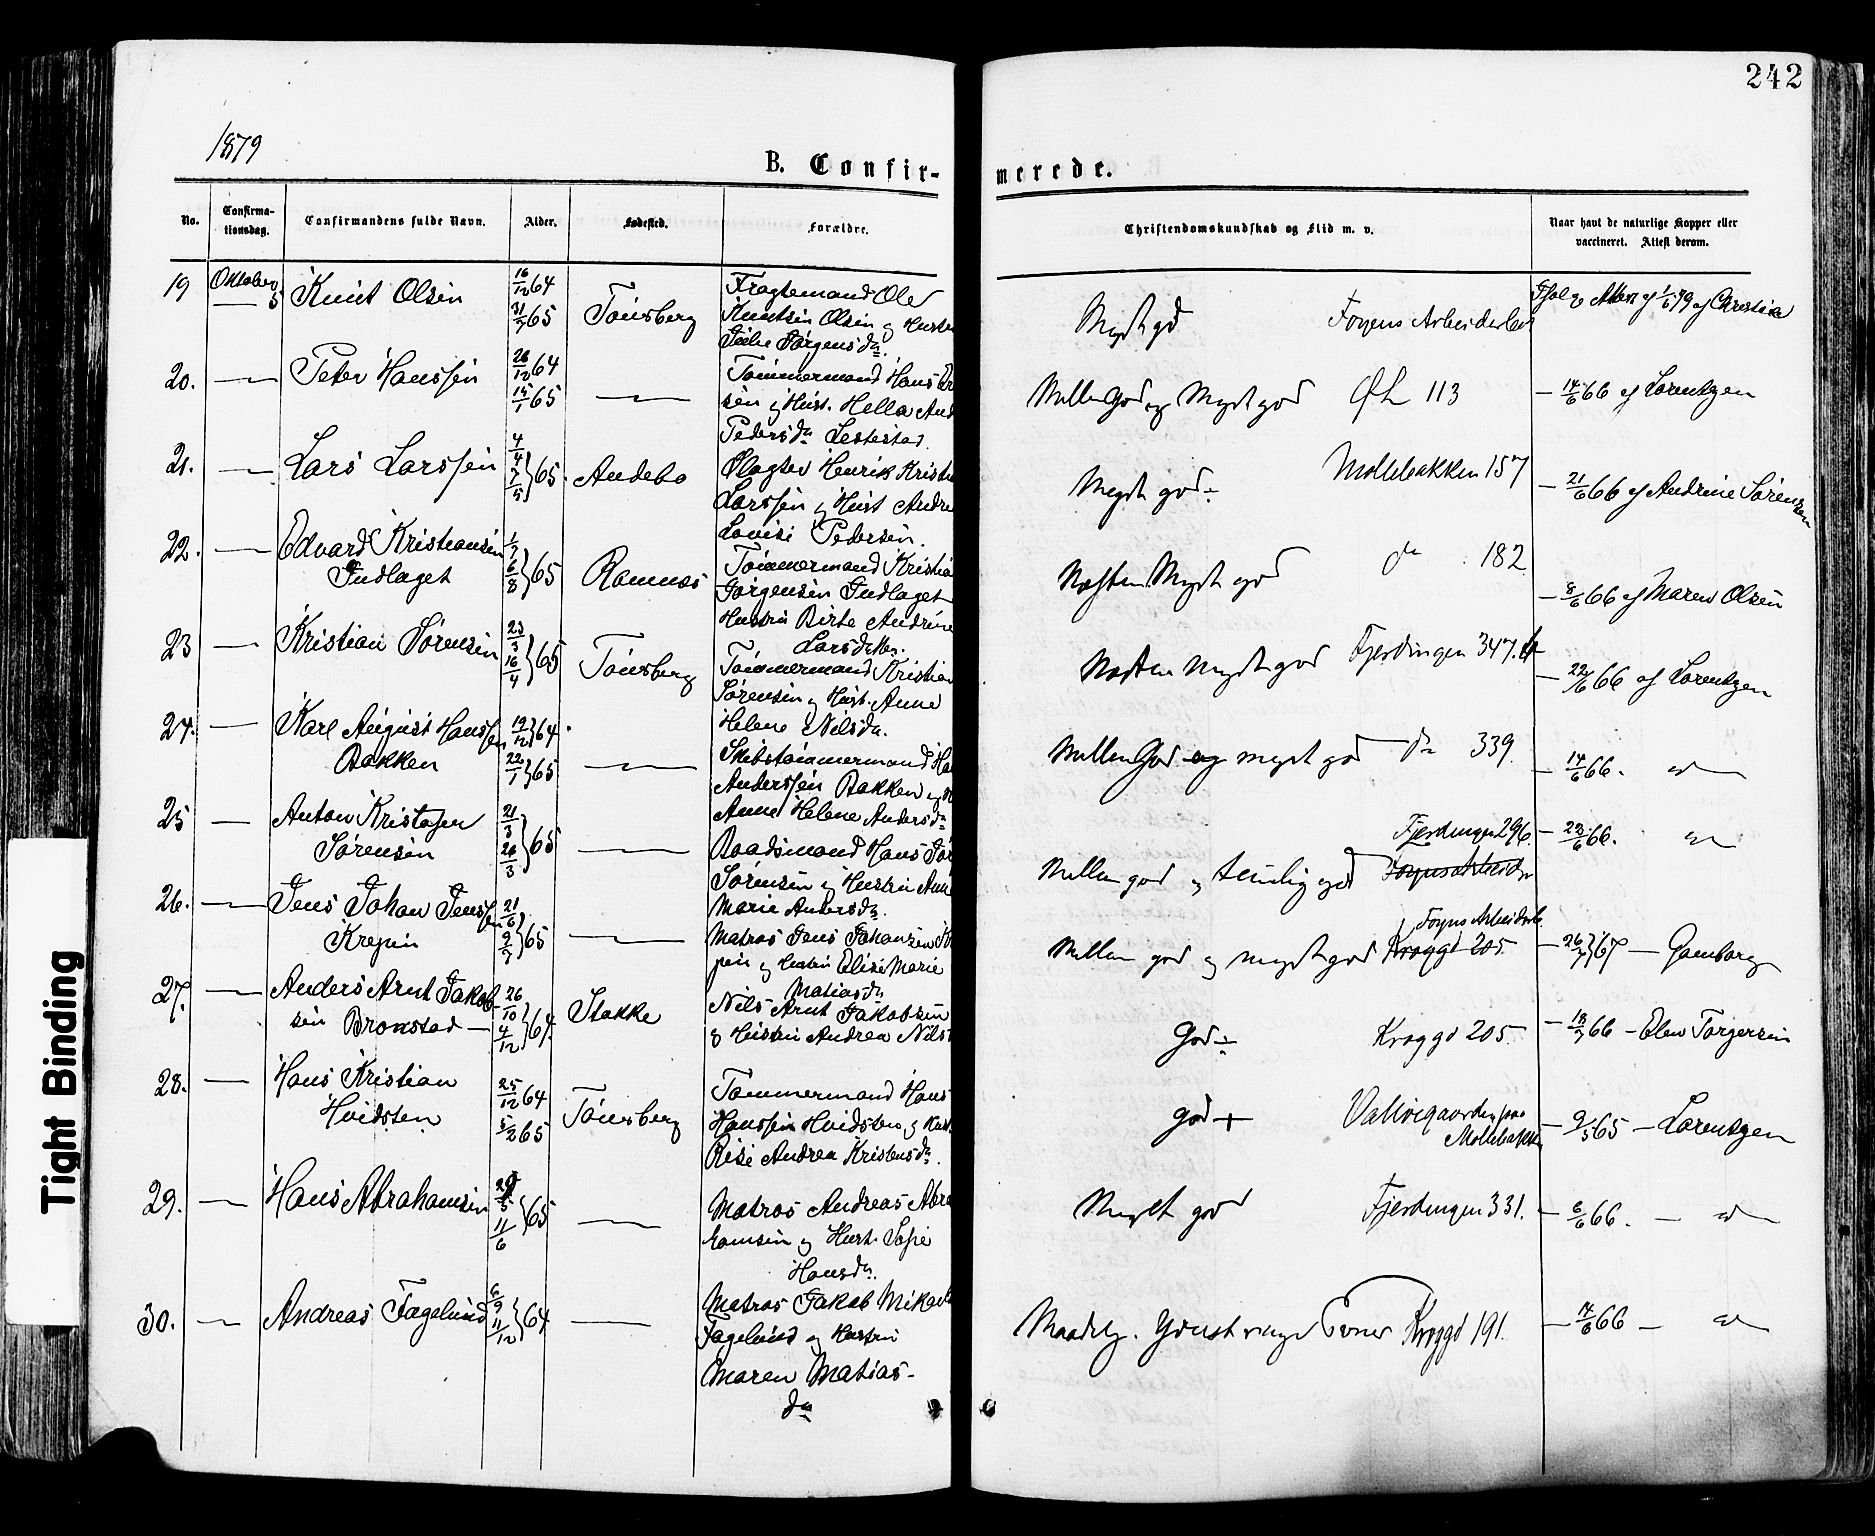 242
1879
B. Confir-
merede.
No.
Confirma-
tionsdag.
Confirmandens fulde Navn.
Alder.
Fødested.
Forældre.
Christendomskundskab og Flid m. v.
Naar havt de naturlige Kopper eller
vaccineret. Attest derom.
19 Oktober 5 Knut Olsen 16/12 64 31/3 65 Tönsberg
Fragtemand Ole
Knutsen Olsen og Hustru
Jörgensdr.
Meget god Foyens Arbeiderbol
1/6 79 af Christie
20. — Peter Hanssen 26/12 64 15/1 65 —
Tömmermand Hans
sen og Hust. Hella And
Pedersdr
Mellem God og Meget god ØL 113
— 14/6 66 af Lorentzen
21. — Lars Larssen 4/4 7/5 } 65. Andebo
Slagter Henrik Kristi
Larssen og Hust Andre
Lovise Pedersen.
Meget god ÷ Möllebakken 157
— 21/6 66 af Andrine Sörensen
22. — Edvard Kristiansen
Indlaget
1/7 6/8 } 65 Ramnæs
Tömmermand Kristia
Jörgensen Indlaget
Hustru Birte Andrine
Larsdatter.
Næsten Meget god do 182
— 8/6 66 af Maren Olsen
23 — Kristian Sörensen 23/3 16/4 } 65 Tönsberg
Tömmermand Kristian
Sörensen og Hust. Anne
Helene Nilsdr.
Næsten Meget god Fjerdingen 347.
— 22/6 66 af Lorentzen
24. — Karl August Hanssen
Bakken
19/12 } 64 22/1 } 65 —
Skibstömmermand Ha
Anderssen Bakken og H
Anne Helene Andersdr
Mellem God og meget god do 339.
— 14/6 66. —
25 — Anton Kristofer
Sörensen
21/3 26/3 } 65 —
Baadsmand Hans Sör
Sörensen og Hustru Ann
Marie Andersdr.
Mellem god og temelig god Fjerdingen 296.
Foyns Arbeider
— 23/6 66. —
26. — Jens Johan Jenssen
Krepin
21/6 9/7 } 65 —
Matros Jens Johansen K
pin og Hustru Elise Marie
Matiasdr
Mellem god og meget god Foyns Arbeiderb.
Kroggd 205.
— 26/7 } 67 — Gamborg
27. — Anders Arnt Jakob-
sen Bronstad —
26/10 4/12 } 64. Stokke
Nils Arnt Jakobsen
& Hustru Andrea Nils
God ÷ Kroggd 205
— 18/7 66 — Elen Torgersen
28. — Hans Kristian
Hvidsten
25/12 64 5/2 65 Tönsberg
Tömmermand Hans
Hanssen Hvidsten og Hust
Risi Andrea Kristensdr.
god + Vallöegaarden paa
Möllebakken
— 9/5 65 — Lorentzen
29. — Hans Abrahamsen 29/5 11/6 } 65 —
Matros Andreas Abra
hamsen og Hust. Sofie
Hansdr.
Meget god Fjerdingen 331.
— 6/6 66. — —
30. — Andreas Fagelund 6/9 11/12 } 64 —
Matros Jakob Mikael
Fagelund og Hustru
Maren Matias-
dr
Maadelg. Yderst ringe Evner Kroggd 191.
— 14/6 66 — —
Tight Binding